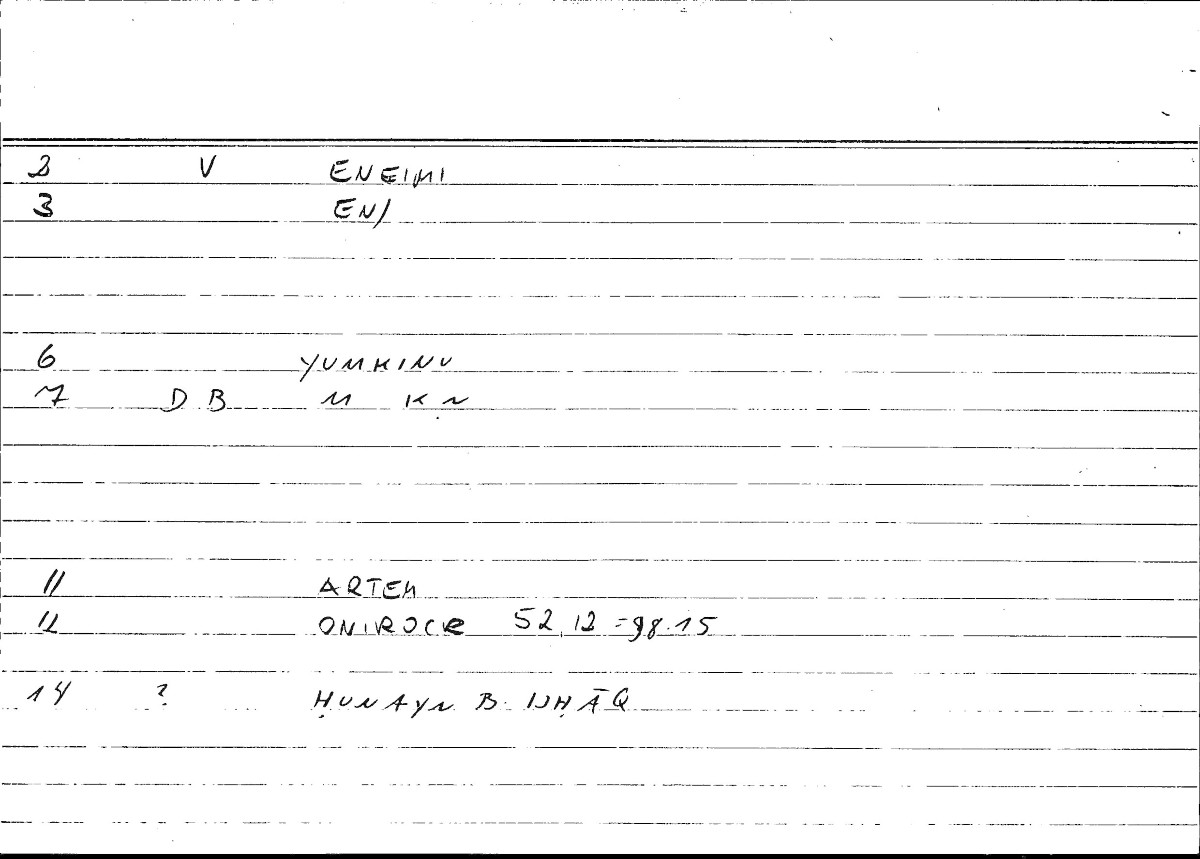 2 V ENEIMI
3 EN/
6 YUMKINU
7 D B M K N
11 ARTEM
12 ONIROCR 52,12 = 98.15
14 ? ḤUNAYN B. ISḤĀQ